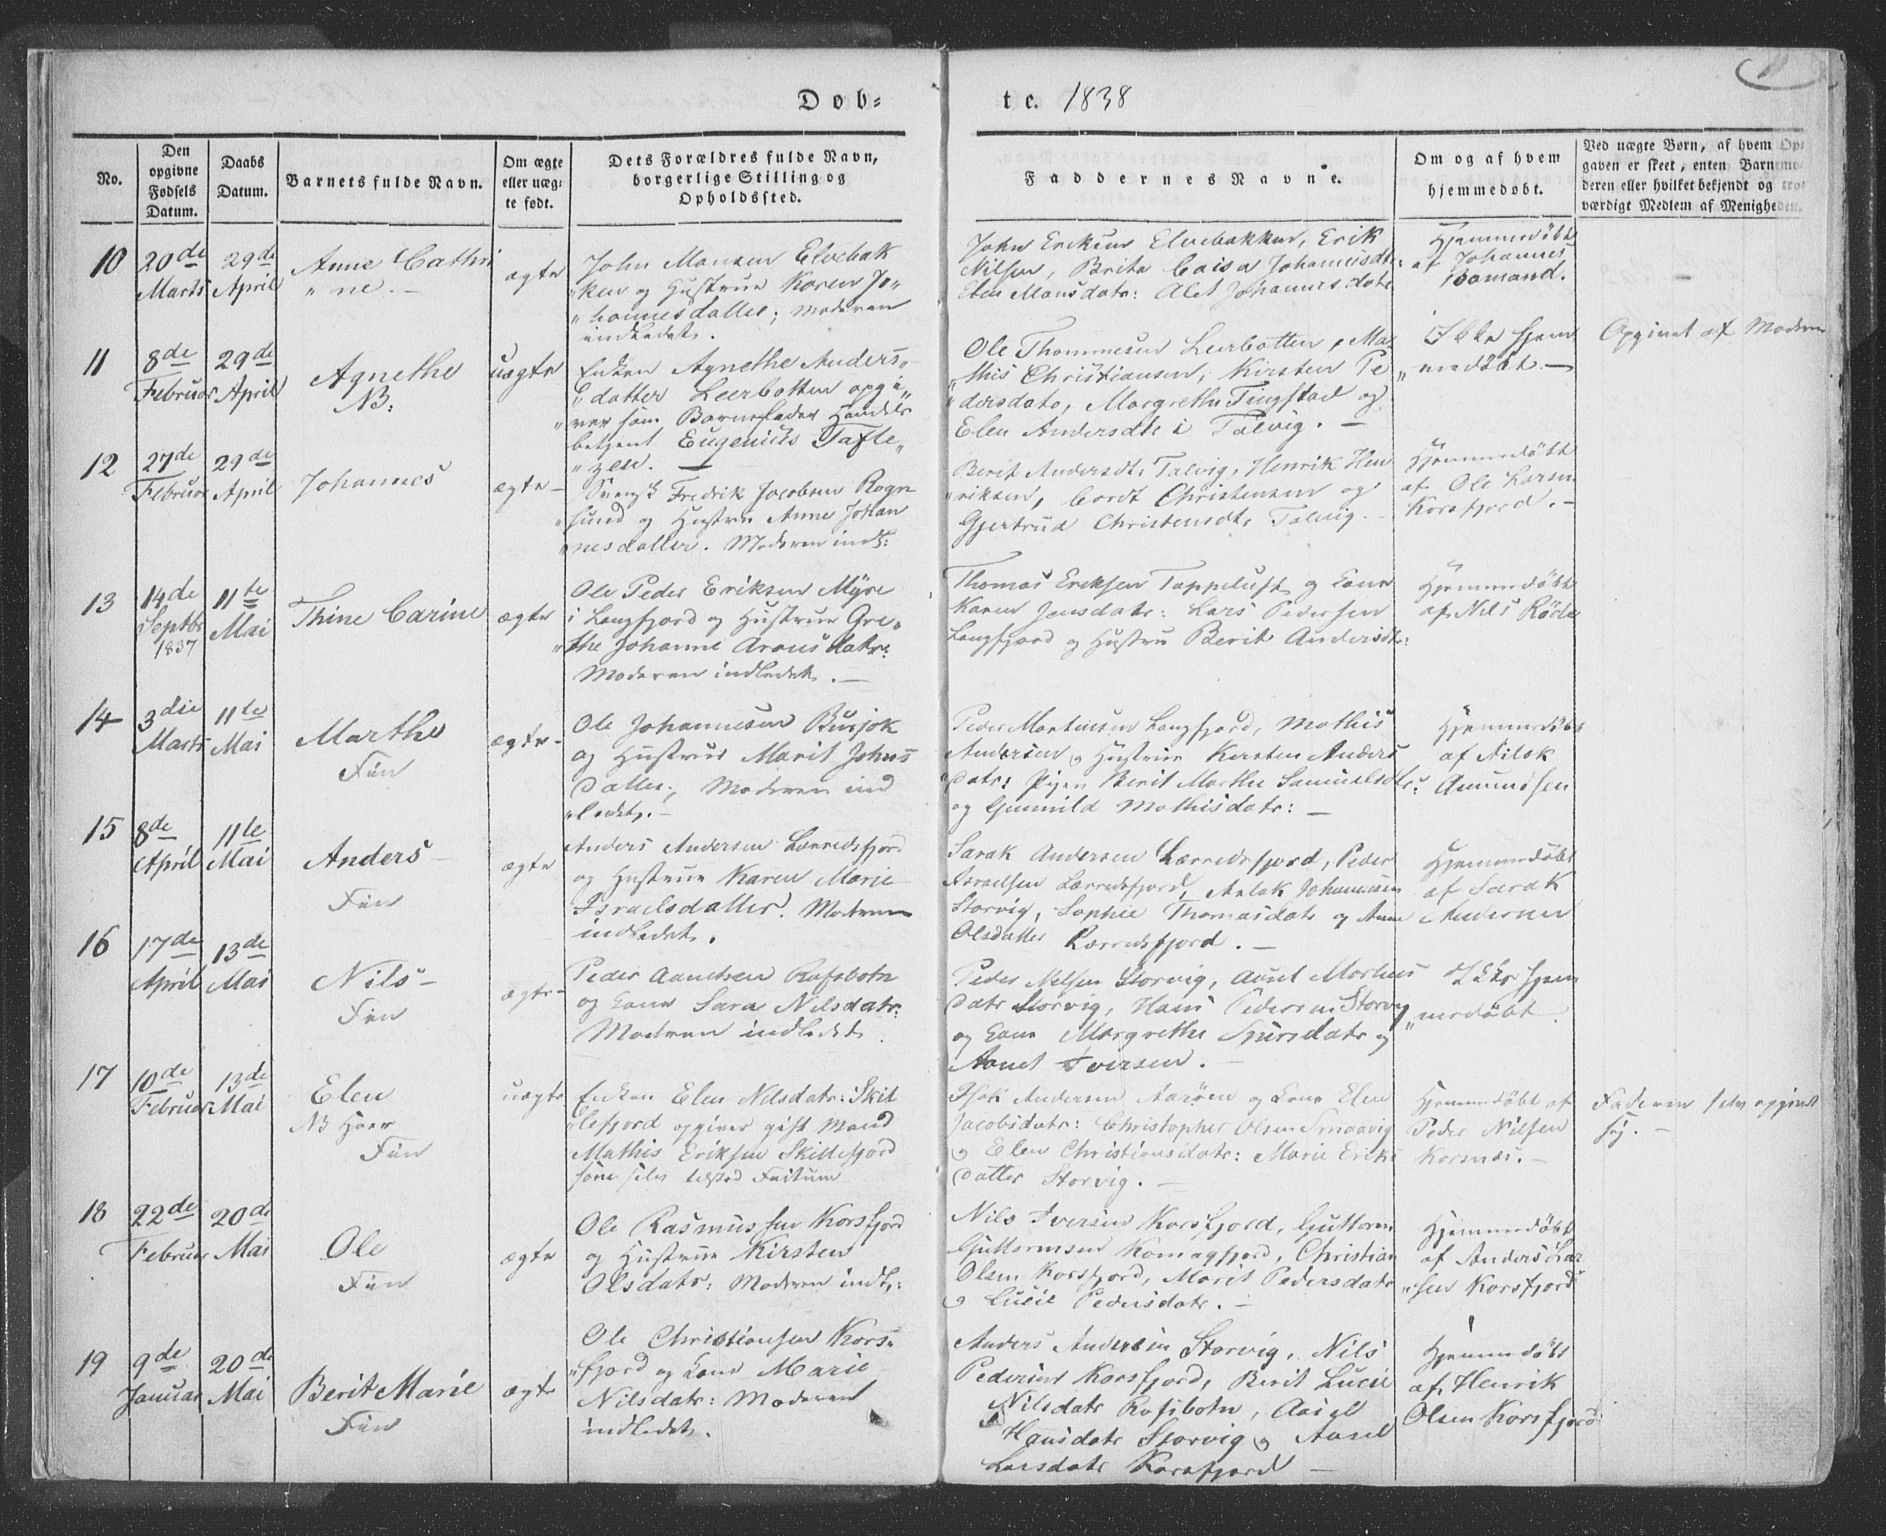 Dob-
te. 1838
No.
Den opgivne Fødsels Datum.
Daabs Datum.
Barnets fulde Navn.
Om ægte eller uæg-te født.
Dets Forældres fulde Navn, borgerlige Stilling og Opholdssted.
Faddernes Navne.
Om og af hvem hjemmedøbt.
Ved uægte Børn, af hvem Op-
gaven er skeet, enten Barnemo-
deren eller hvilket bekjendt og tro-
værdigt Medlem af Menigheden.
10
20de Marts
29de April
Anne Cathri
"ne. -
ægte
John Monsen Elvebak
"ken og Hustrue Karen Jo"
"hannesdatter; Moderen
indledet.
John Ericksen Elvebakken, Erik
Nilsen, Brita Caisa Johannesdtr:
Elen Monsdatr: Alet Johannesdatr
Hjemmedøbt
af Johannes
Bomand.
11
8de Februar
29de April
Agnethe
NB:
uægte
Enken Agnethe Anders"
"datter Leerbotten opgi"
"ver som Barnefader Handels
betjent Eugenius Tafte"
"zen. -
Ole Thommesen Leerbotten, Ma"
"this Christiansen, Kirsten Pe
"dersdatr, Margrethe Tingstad og
Elen Andersdtr i Talvig. -
Ikke hjem
"medøbt -
Opgivet af Moderen
12
27de Februar
29de April
Johannes
ægte -
Svensk Fredrik Jacobsen Rogn
"sund og Hustru Anne Johan
"nesdatter. Moderen indl:
Berit Andersdtr Talvig, Henrik Hen
"riksen, Cordt Christensen og
Gjertrud Christensdtr Talvig. -
Hjemmedøbt
af Ole Larsen
Korsfjord. -
13
14de Septbr 1837
11te Mai
Thine Carine
ægte
Ole Peder Eriksen Myre
i Langfjord og Hustrue Gre-
"the Johanne Aronsdatr:
Moderen indledet. -
Thomas Ericksen Tappeluft og Kone
Karen Jensdatr: Lars Pedersen
Langfjord og Hustru Berit Andersdtr:
Hjemmedøbt
af Nils
14
3die Marts
11te Mai
Marthe
Fin
ægte -
Ole Johannesen Bursjok
og Hustrue Marit Johns
datter, Moderen ind
"ledet. -
Peder Mortensen Langfjord, Mathis
Andersen og Hustrue Kirsten Anders
"datr: Pigen Berit Marthe Samuelsdtr:
og Gunnild Mathisdatr: -
Hjemmedøbt
af Aslak
Amundsen
15
8de April
11te Mai
Anders -
Fin
ægte
Anders Andersen Lærredsfjord
og Hustrue Karen Marie
Israelsdatter. Moderen
indledet.
Sarak Andersen Lærredsfjord, Peder
Israelsen Lærredsfjord, Aslak Johannesen
Storvig, Sophie Thomasdatr og Anne
Olsdatter Lærredsfjord. -
Hjemmedøbt
af Sarak
Andersen
16
17de April
13de Mai
Nils -
Fin
ægte -
Peder Aanetsen Rafsbotn
og Kone Sara Nilsdatr:
Moderen indledet.
Peder Nilsen Storvig, Aanet Mortens
datr Storvig, Hans Pedersen Storvig
og Kone Margrethe Spirsdatr og
Aanet Iversen. -
Ikke hjem
"medøbt
17
10de Februar
13de Mai
Elen
NB Hoer
Fin
uægte
Enken Elen Nilsdatr: Skil
"lefjord opgiver gift Mand
Mathis Eriksen Skillefjord
som selv tilstod Factum
Isak Andersen Aarøen og Kone Elen
Jacobsdatr: Christopher Olsen Smaavig
og Elen Christiansdatr: Marie Eriks
datter Storvig. -
Hjemmedøbt af
Peder Nilsen
Korsnæs. -
Faderen selv opgivet
sig. -
18
22de Februar
20de Mai
Ole
Fin
ægte
Ole Rasmussen Korsfjord
og Hustrue Kirsten
Olsdatr: Moderen indl:
Nils Iversen Korsfjord, Guttorm
Guttormsen Komagfjord, Christian
Olsen Korsfjord, Marit Pedersdatr
og Lucie Pedersdatr. -
Hjemmedøbt
af Anders Lar
"sen Korsfjord
19
9de Januar
20de Mai
Berit Marie
Fin
ægte
Ole Christiansen Kors-
"fjord og Kone Marie
Nilsdatr: Moderen
indledet.
Anders Andersen Storvig, Nils
Pedersen Korsfjord, Berit Lucie
Nilsdatr Rafsbotn, Aasel
Hansdatr Storvig og Aasel
Larsdatr Korsfjord -
Hjemmedøbt
af Henrik
Olsen Korsfjord